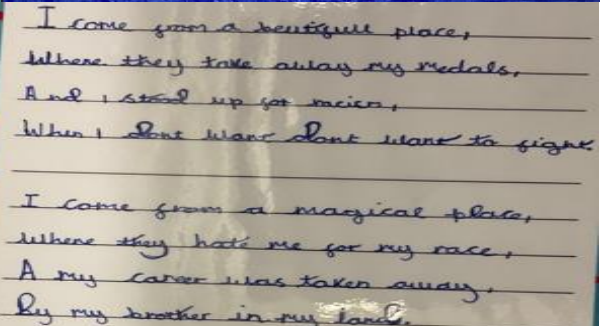 I come from a beutifull place,
Where they take away my medals,
And i stood up for racism,
When i Dont want Dont want to fight.
I come from a magical place,
Where they hate me for my race,
A my career was taken away,
By my brother in my land.